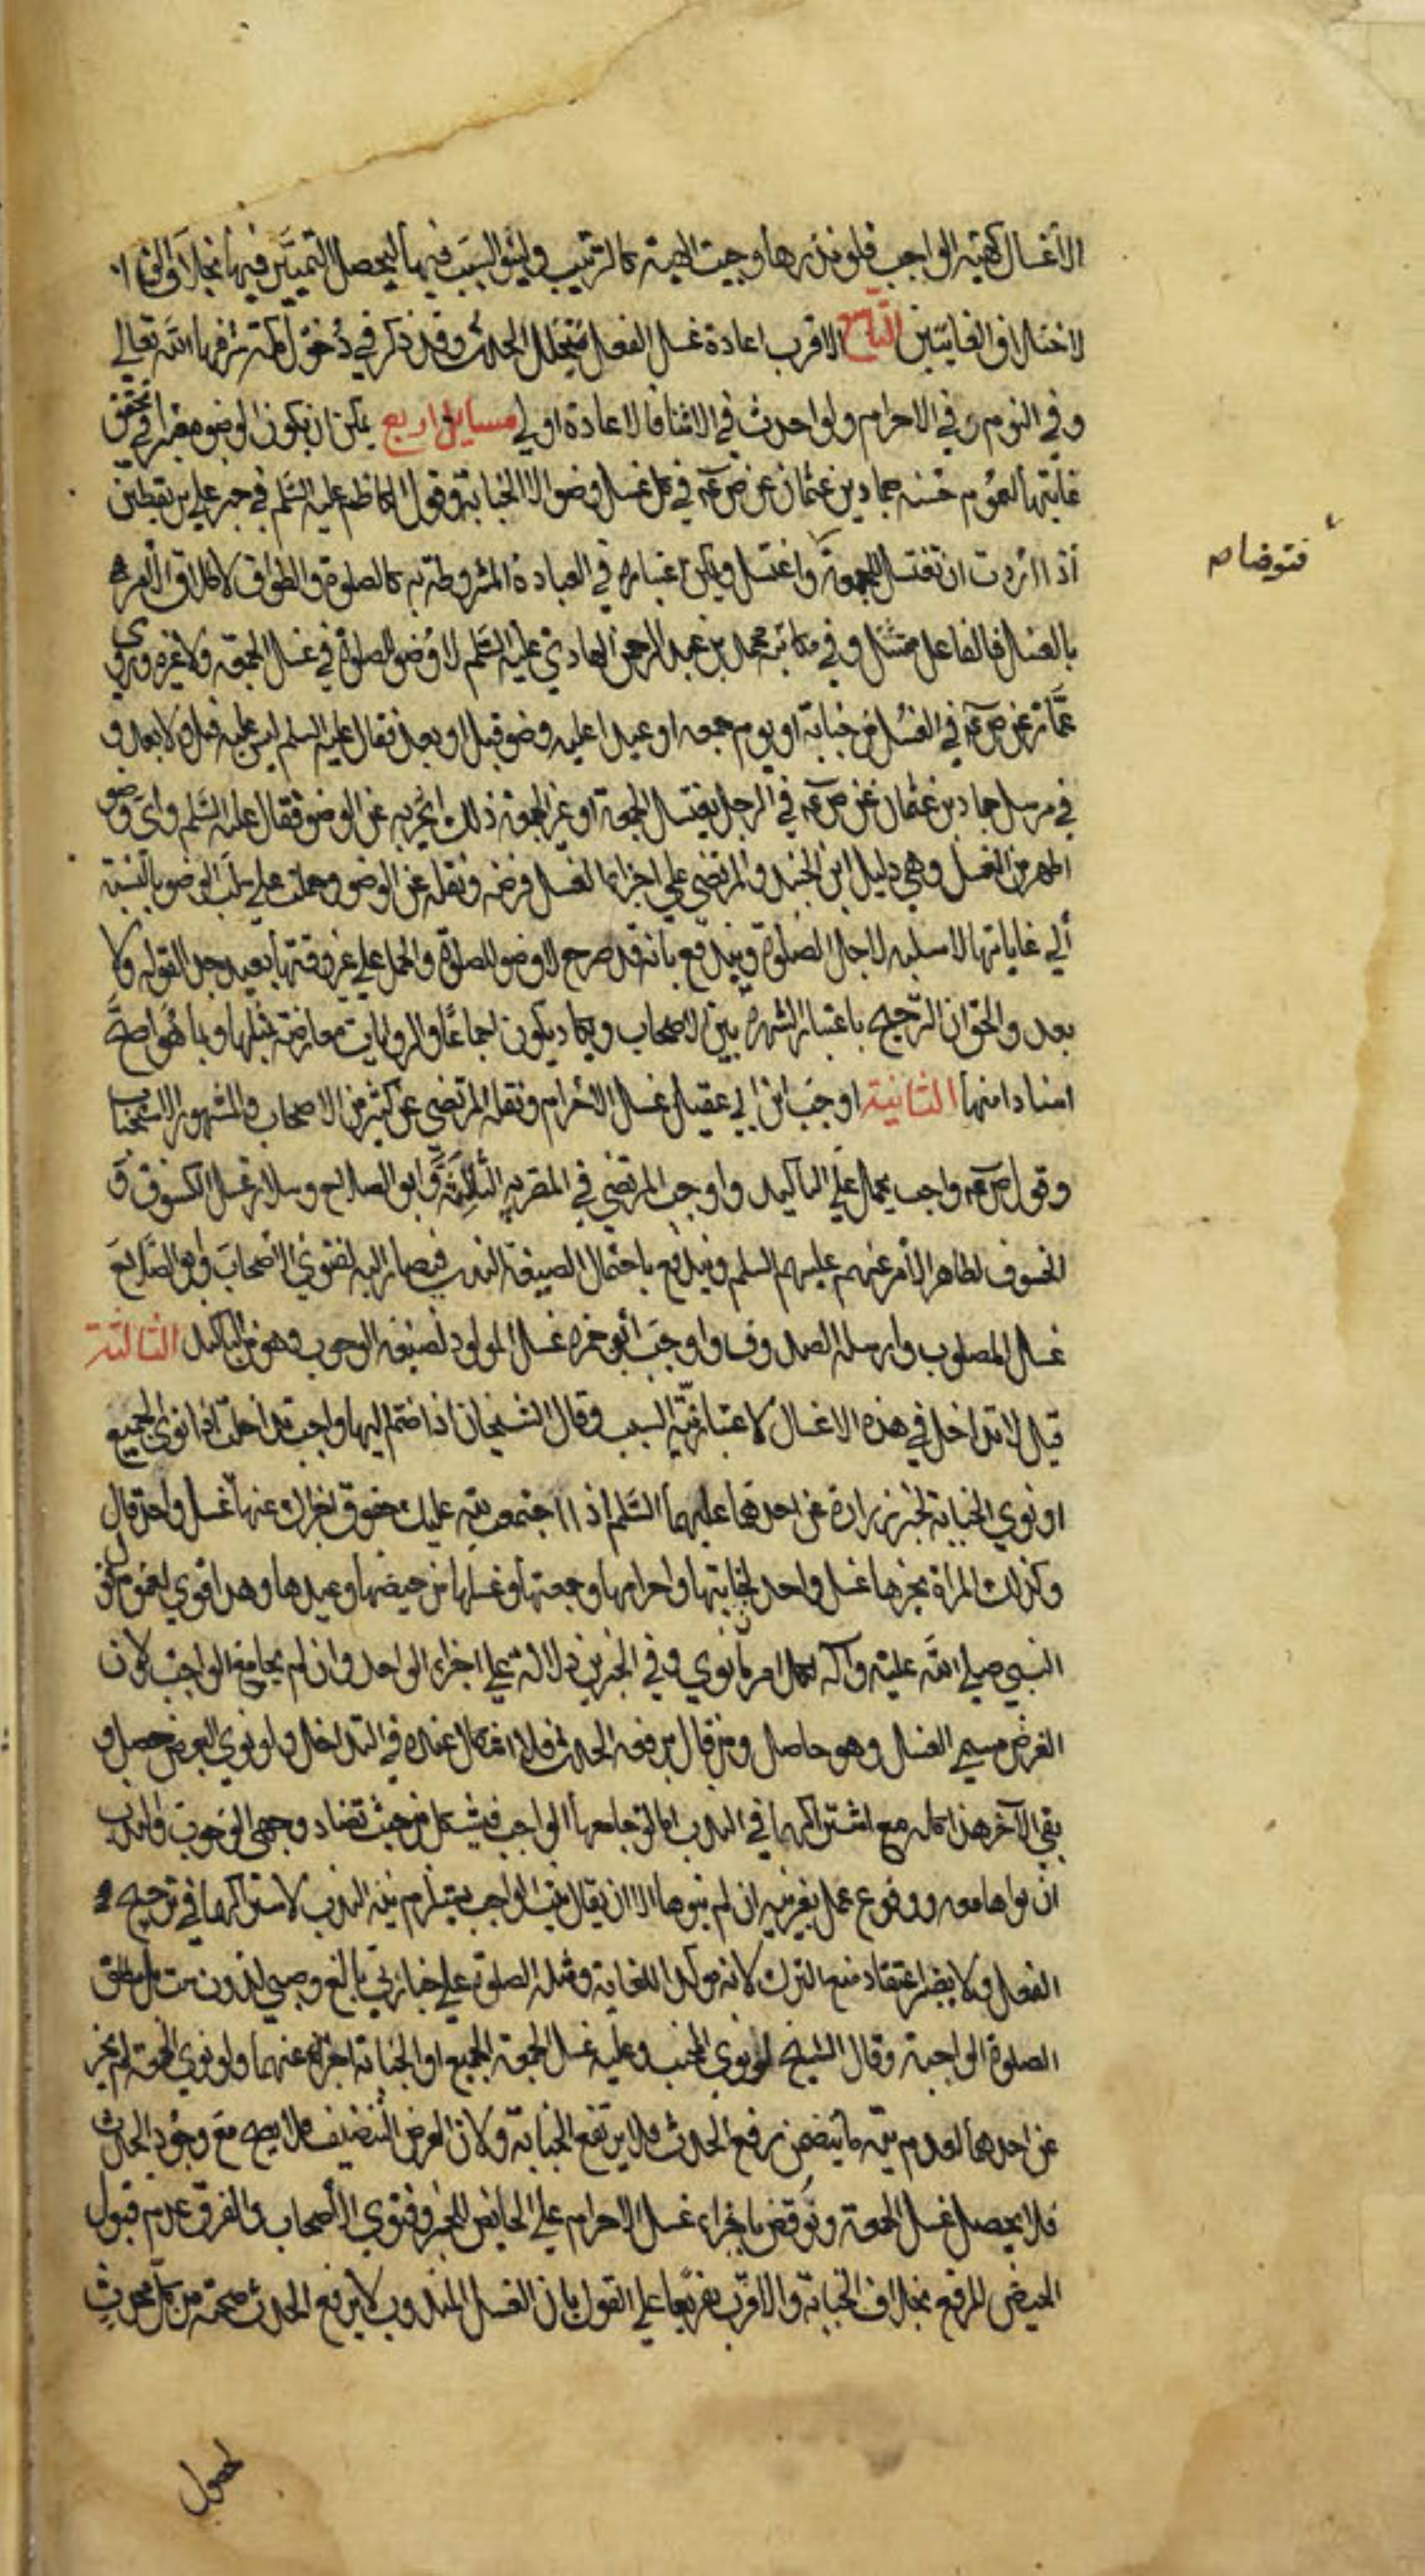 الاغسال كهيئة الواجب فلو نذرها وجبت الهيئة كالترتيب ولينو السبب فيها ليحصل التمييز فيها بخلاف الواجب
لاختلاف الغايتين التاسع الاقرب اعادة غسل الفعل بتخلل الحدث وقد ذكر في دخول مكة شرفها الله تعالى
وفي النوم وفي الاحرام ولو احدث في الاثنا فالاعادة اولى مسايل اربع يمكن ان يكون الوضو معتبرا في تحقق
غايتها لعموم حسنة حماد بن عثمان عن ص ع م في كل غسل وضو الا الجنابة وقول الكاظم عليه السلم في خبر علي بن يقطين
اذا اردت ان تغتسل للجمعة واغتسل ويمكن اعتباره في العبادة المشروطة به كالصلوة والطواف لاطلاق الامر
فتوضا ص
بالغسل فالفاعل ممتثل وفي مكاتبة محمد بن عبد الرحمن الهادي عليه السلم لا وضو للصلوة في غسل الجمعة ولا غيره وروى
عمار عن ص ع م في الغسل من جنابة او يوم جمعه او عيد اعليه وضو قبل او بعد فقال عليه السلم ليس عليه قبل ولا بعد و
في مرسل حماد بن عثمان عن ص ع م في الرجل يغتسل للجمعة او غير الجمعة ذلك ايجزيه عن الوضو فقال عليه السلم واي وضو
اطهر من الغسل وهي دليل ابن الجنيد والمرتضى على اجزاء الغسل فرضه ونفله عن الوضو وحملت على سلب الوضو بالنسبة
الي غاياتها لا سلبه لاجل الصلوة ويندفع بانه قد صرح لا وضو للصلوة والحمل على غير وقتها بعيد وجدا لقوله ولا
بعد والحق ان الترجيح باعتبار الشهرة بين الاصحاب ويكاد يكون اجماعا والروايات معارضة بمثلها وبما هو اصح
اسنادا منها الثانية اوجب ابن ابي عقيل غسل الاحرام ونقله المرتضى عن كثير من الاصحاب والمشهور الاستحباب
وقول ص ع م واجب يحمل على التاكيد واوجب المرتضى في المصرية الثالثة وابو الصلاح وسلار غسل الكسوف و
الخسوف لظاهر الامر عنهم عليهم السلم ويندفع باحتمال الصيغة الندب فيصار اليه لفتوى الاصحاب وابو الصلاح
غسل المصلوب وارسله الصدوق واوجب ابن حمزه غسل المولود لصيغة الوجوب وهو من التاكيد الثالثة
قيل لا تداخل في هذه الاغسال لاعتبار نية السبب وقال الشيخان اذا ضم اليها واجب تداخلت اذا نوى الجميع
او نوى الجنابة لخبر زرارة عن احدهما عليهما السلم اذا اجتمعت لله عليك حقوق اجزاك عنها غسل واحد قال
وكذلك المراة يجزيها غسل واحد لجنابتها واحرامها وجمعتها وغسلها من حيضها وعيدها وهذا قوي لعموم قول
النبي صلى الله عليه وآله لكل امرء ما نوى وفي الخبرين دلالة على اجزاء الواحد وان لم يجامع الواجب لان
الغرض مسمى الغسل وهو حاصل ومن قال برفعه الحدث فلا اشكال عنده في التداخل ولو نوى البعض حصل و
بقي الآخر هذا كله مع اشتراكهما في الندب اما لو جامعها الواجب فيشكل من حيث تضاد وجهي الوجوب والندب
ان نواهما معه ووقوع عمل بغير نية ان لم ينوها الا ان يقال نية الواجب يستلزم نية الندب لاشتراكهما في ترجيح
الفعل ولا يضر اعتقاد منع الترك لانه موكد للغاية ومثله الصلوة على جنازتي بالغ وصبي لدون ست بل مطلق
الصلوة الواجبة وقال الشيخ لو نوى الجنب وعليه غسل الجمعة الجميع او الجنابة اجزاه عنهما ولو نوى الجمعة لم يجز
عن احدهما لعدم نية ما يتضمن رفع الحدث فلا يرتفع الجنابة ولان الغرض التنظيف فلا يصح مع وجود الحدث
فلا يحصل غسل الجمعة ونوقض باجزاء غسل الاحرام على الحايض للخبر وفتوى الاصحاب والفرق عدم قبول
الحيض للرفع بخلاف الجنابة والاقرب تفريعا على القول بان الغسل المندوب لا يرفع الحدث صحته من كل محدث
لحصول